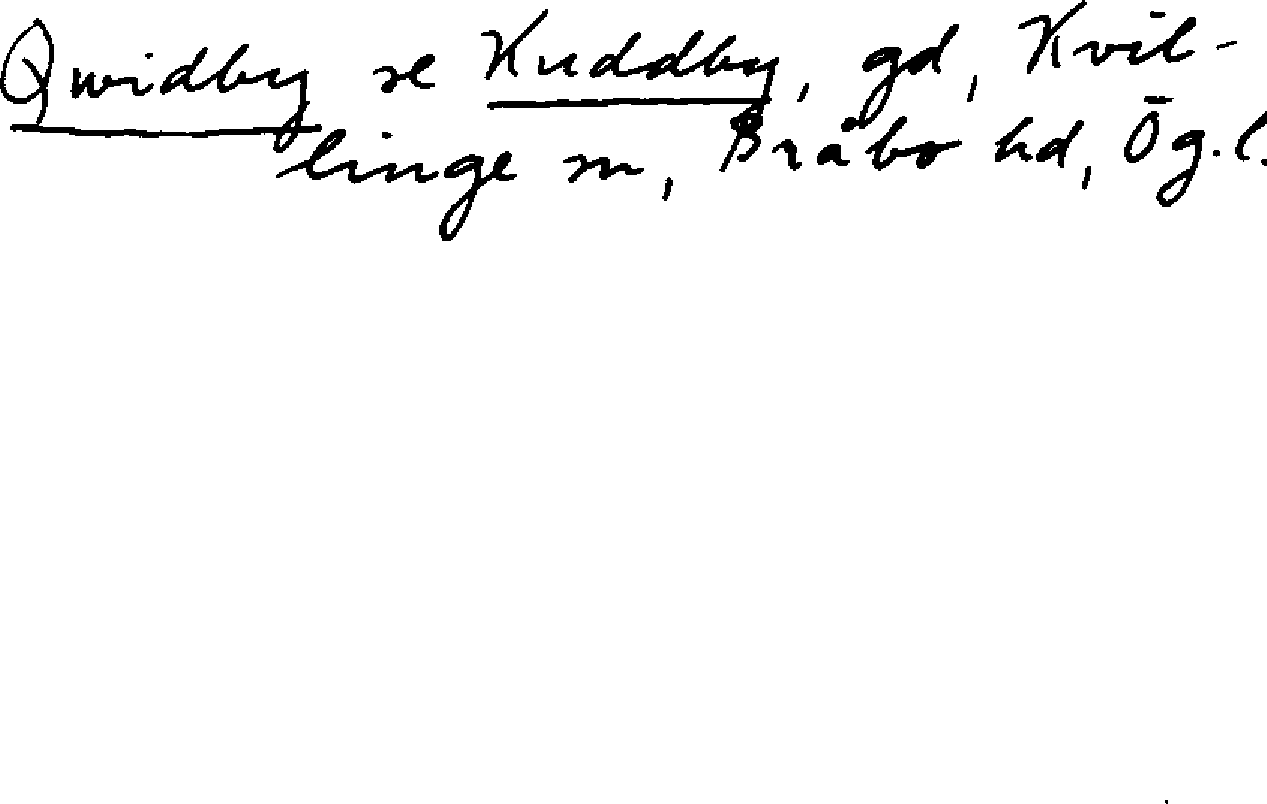 Qwidby se Kuddby, gd, Kvil-
linge sn, Bråbo hd, Ög.l.